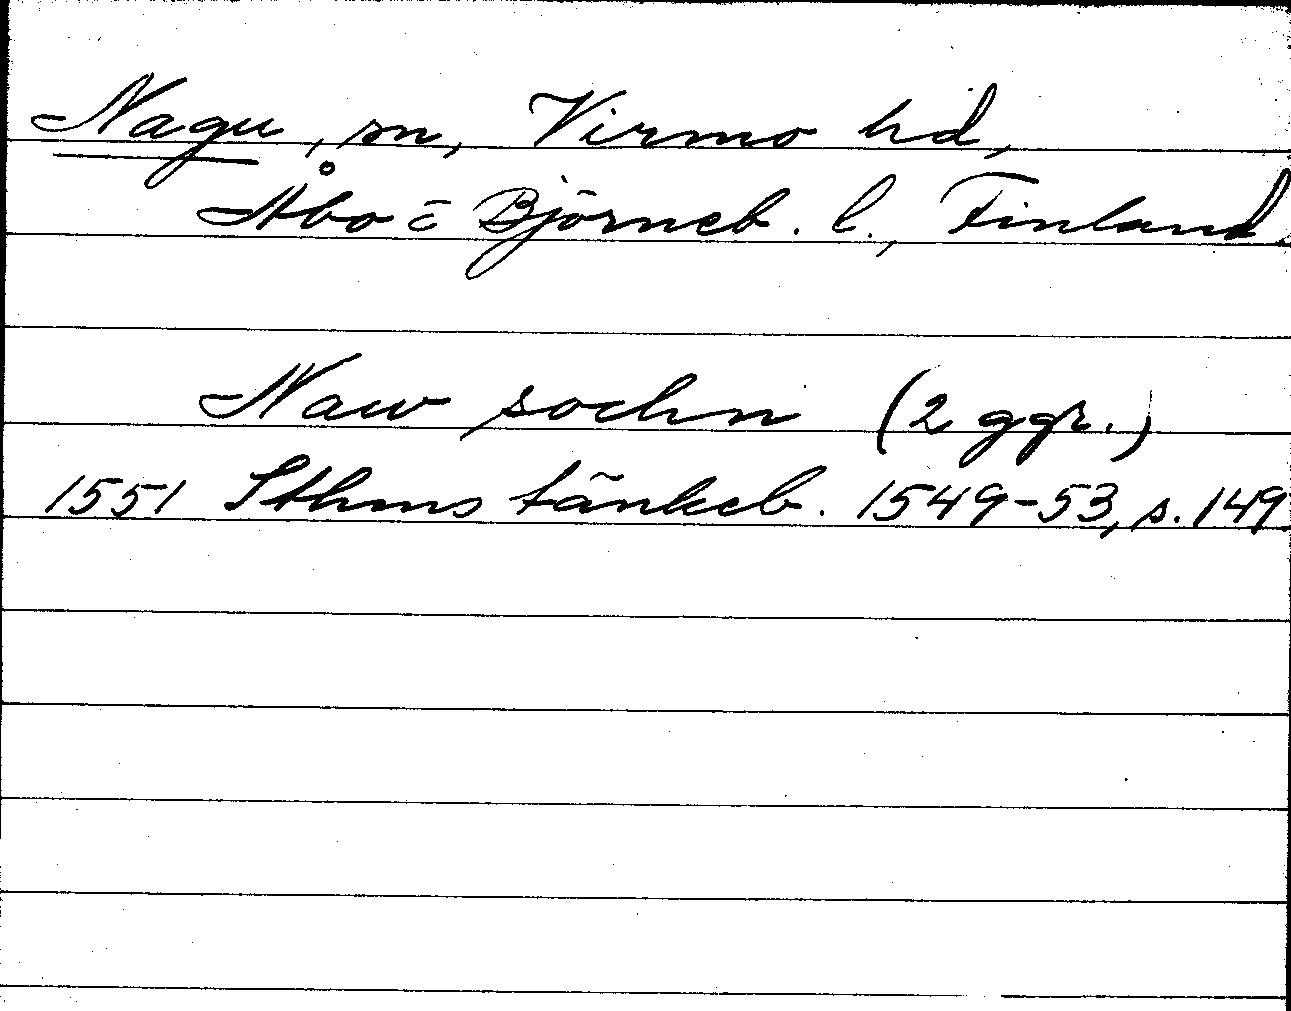 Nagu, sn, Virmo hd,
Åbo o Björneb. l., Finland.
Naw sochn (2 ggr.)
1551 Sthms tänkeb. 1549-53, s. 149